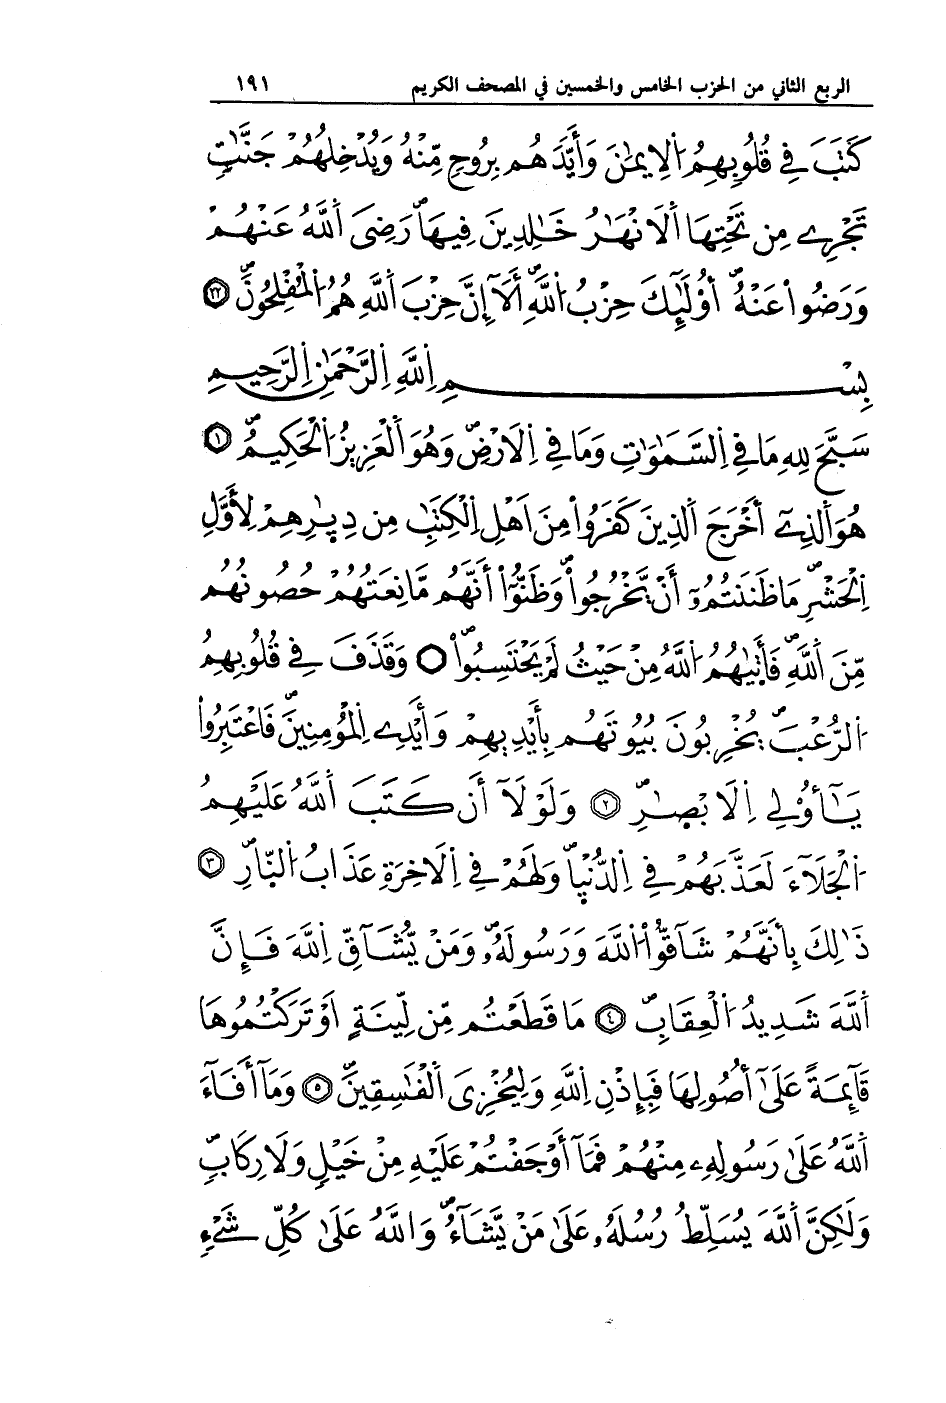 الربع الثاني من الحزب الخامس والخمسين في المصحف الكريم ١٩١
كَتَبَ فِي قُلُوبِهِمُ اَ۬لِايمَٰنَ وَأَيَّدَهُم بِرُوحٖ مِّنْهُ وَيُدْخِلُهُمْ جَنَّٰتٖ
تَجْرِے مِن تَحْتِهَا اَ۬لَانْهَٰرُ خَٰلِدِينَ فِيهَاۖ رَضِيَ اَ۬للَّهُ عَنْهُمْ
وَرَضُواْ عَنْهُۖ أُوْلَٰٓئِكَ حِزْبُ اُ۬للَّهِۖ أَلَآ إِنَّ حِزْبَ اَ۬للَّهِ هُمُ اُ۬لْمُفْلِحُونَۖ ٢٢
بِسْمِ اِ۬للَّهِ اِ۬لرَّحْمَٰنِ اِ۬لرَّحِيمِ
سَبَّحَ لِلهِ مَا فِي اِ۬لسَّمَٰوَٰتِ وَمَا فِي اِ۬لَارْضِۖ وَهُوَ اَ۬لْعَزِيزُ اُ۬لْحَكِيمُۖ ١
هُوَ اَ۬لذِےٓ أَخْرَجَ اَ۬لذِينَ كَفَرُواْ مِنَ اَهْلِ اِ۬لْكِتَٰبِ مِن دِيٰ۪رِهِمْ لِأَوَّلِ
اِ۬لْحَشْرِۖ مَا ظَنَنتُمُۥٓ أَنْ يَّخْرُجُواْۖ وَظَنُّوٓاْ أَنَّهُم مَّانِعَتُهُمْ حُصُونُهُم
مِّنَ اَ۬للَّهِۖ فَأَت۪ىٰهُمُ اُ۬للَّهُ مِنْ حَيْثُ لَمْ يَحْتَسِبُواْۖ وَقَذَفَ فِي قُلُوبِهِمُ
اُ۬لرُّعْبَۖ يُخْرِبُونَ بُيُوتَهُم بِأَيْدِيهِمْ وَأَيْدِے اِ۬لْمُؤْمِنِينَۖ فَاعْتَبِرُواْ
يَٰٓأُوْلِي اِ۬لَابْصٰ۪رِۖ ٢ وَلَوْلَآ أَن كَتَبَ اَ۬للَّهُ عَلَيْهِمُ
اُ۬لْجَلَآءَ لَعَذَّبَهُمْ فِي اِ۬لدُّنْي۪اۖ وَلَهُمْ فِي اِ۬لَاخِرَةِ عَذَابُ اُ۬لنّ۪ارِۖ ٣
ذَٰلِكَ بِأَنَّهُمْ شَآقُّواْ اُ۬للَّهَ وَرَسُولَهُۥۖ وَمَنْ يُّشَآقِّ اِ۬للَّهَ فَإِنَّ
اَ۬للَّهَ شَدِيدُ اُ۬لْعِقَابِۖ ٤ مَا قَطَعْتُم مِّن لِّينَةٍ اَوْ تَرَكْتُمُوهَا
قَآئِمَةً عَلَىٰٓ أُصُولِهَا فَبِإِذْنِ اِ۬للَّهِ وَلِيُخْزِيَ اَ۬لْفَٰسِقِينَۖ ٥ وَمَآ أَفَآءَ
اَ۬للَّهُ عَلَىٰ رَسُولِهِۦ مِنْهُمْ فَمَآ أَوْجَفْتُمْ عَلَيْهِ مِنْ خَيْلٖ وَلَا رِكَابٖۖ
وَلَٰكِنَّ اَ۬للَّهَ يُسَلِّطُ رُسُلَهُۥ عَلَىٰ مَنْ يَّشَآءُۖ وَاللَّهُ عَلَىٰ كُلِّ شَےْءٖ